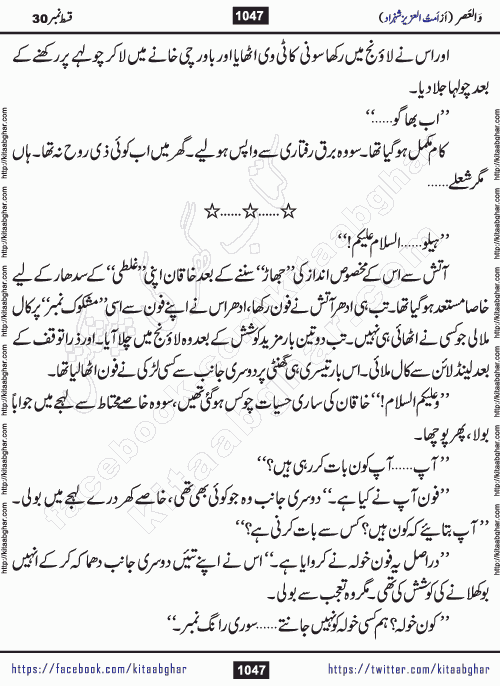 وَالعَصر (اَز اَمتُ العزیز شہزاد)
1047
قسط نمبر 30
اور اس نے لاؤنج میں رکھا سونی کا ٹی وی اٹھایا اور باورچی خانے میں لا کر چولہے پر رکھنے کے
بعد چولہا جلا دیا۔
’’اب بھاگو......‘‘
کام مکمل ہو گیا تھا۔ سو وہ برق رفتاری سے واپس ہو لیے۔ گھر میں اب کوئی ذی روح نہ تھا۔ ہاں
مگر شعلے......
☆......☆......☆
’’ہیلو......السلام علیکم!‘‘
آتش سے اس کے مخصوص انداز کی ’’جھاڑ‘‘ سننے کے بعد خاقان اپنی ’’غلطی‘‘ کے سدھار کے لیے
خاصا مستعد ہو گیا تھا۔ تب ہی ادھر آتش نے فون رکھا، ادھر اس نے اپنے فون سے اسی ’’مشکوک نمبر‘‘ پر کال
ملا لی جو کسی نے اٹھائی ہی نہیں۔ تب دو تین بار مزید کوشش کے بعد وہ لاؤنج میں چلا آیا۔ اور ذرا توقف کے
بعد لینڈ لائن سے کال ملائی۔ اس بار تیسری ہی گھنٹی پر دوسری جانب سے کسی لڑکی نے فون اٹھا لیا تھا۔
’’وعلیکم السلام!‘‘ خاقان کی ساری حسیات چوکس ہو گئی تھیں، سو وہ خاصے محتاط سے لہجے میں جواباً
بولا، پھر پوچھا۔
’’آپ......آپ کون بات کر رہی ہیں؟‘‘
’’فون آپ نے کیا ہے۔‘‘ دوسری جانب وہ جو کوئی بھی تھی، خاصے کھردرے لہجے میں بولی۔
’’آپ بتایئے کہ کون ہیں؟ کس سے بات کرنی ہے؟‘‘
’’دراصل یہ فون خولہ نے کروایا ہے۔‘‘ اس نے اپنے تئیں دوسری جانب دھماکہ کر کے انہیں
بوکھلانے کی کوشش کی تھی۔ مگر وہ تعجب سے بولی۔
’’کون خولہ؟ ہم کسی خولہ کو نہیں جانتے......سوری رانگ نمبر۔‘‘
https://facebook.com/kitaabghar
1047
https://twitter.com/kitaabghar
http://kitaabghar.com
کتاب گھر کی پیشکش
kitaabghar.com
facebook.com/kitaabghar